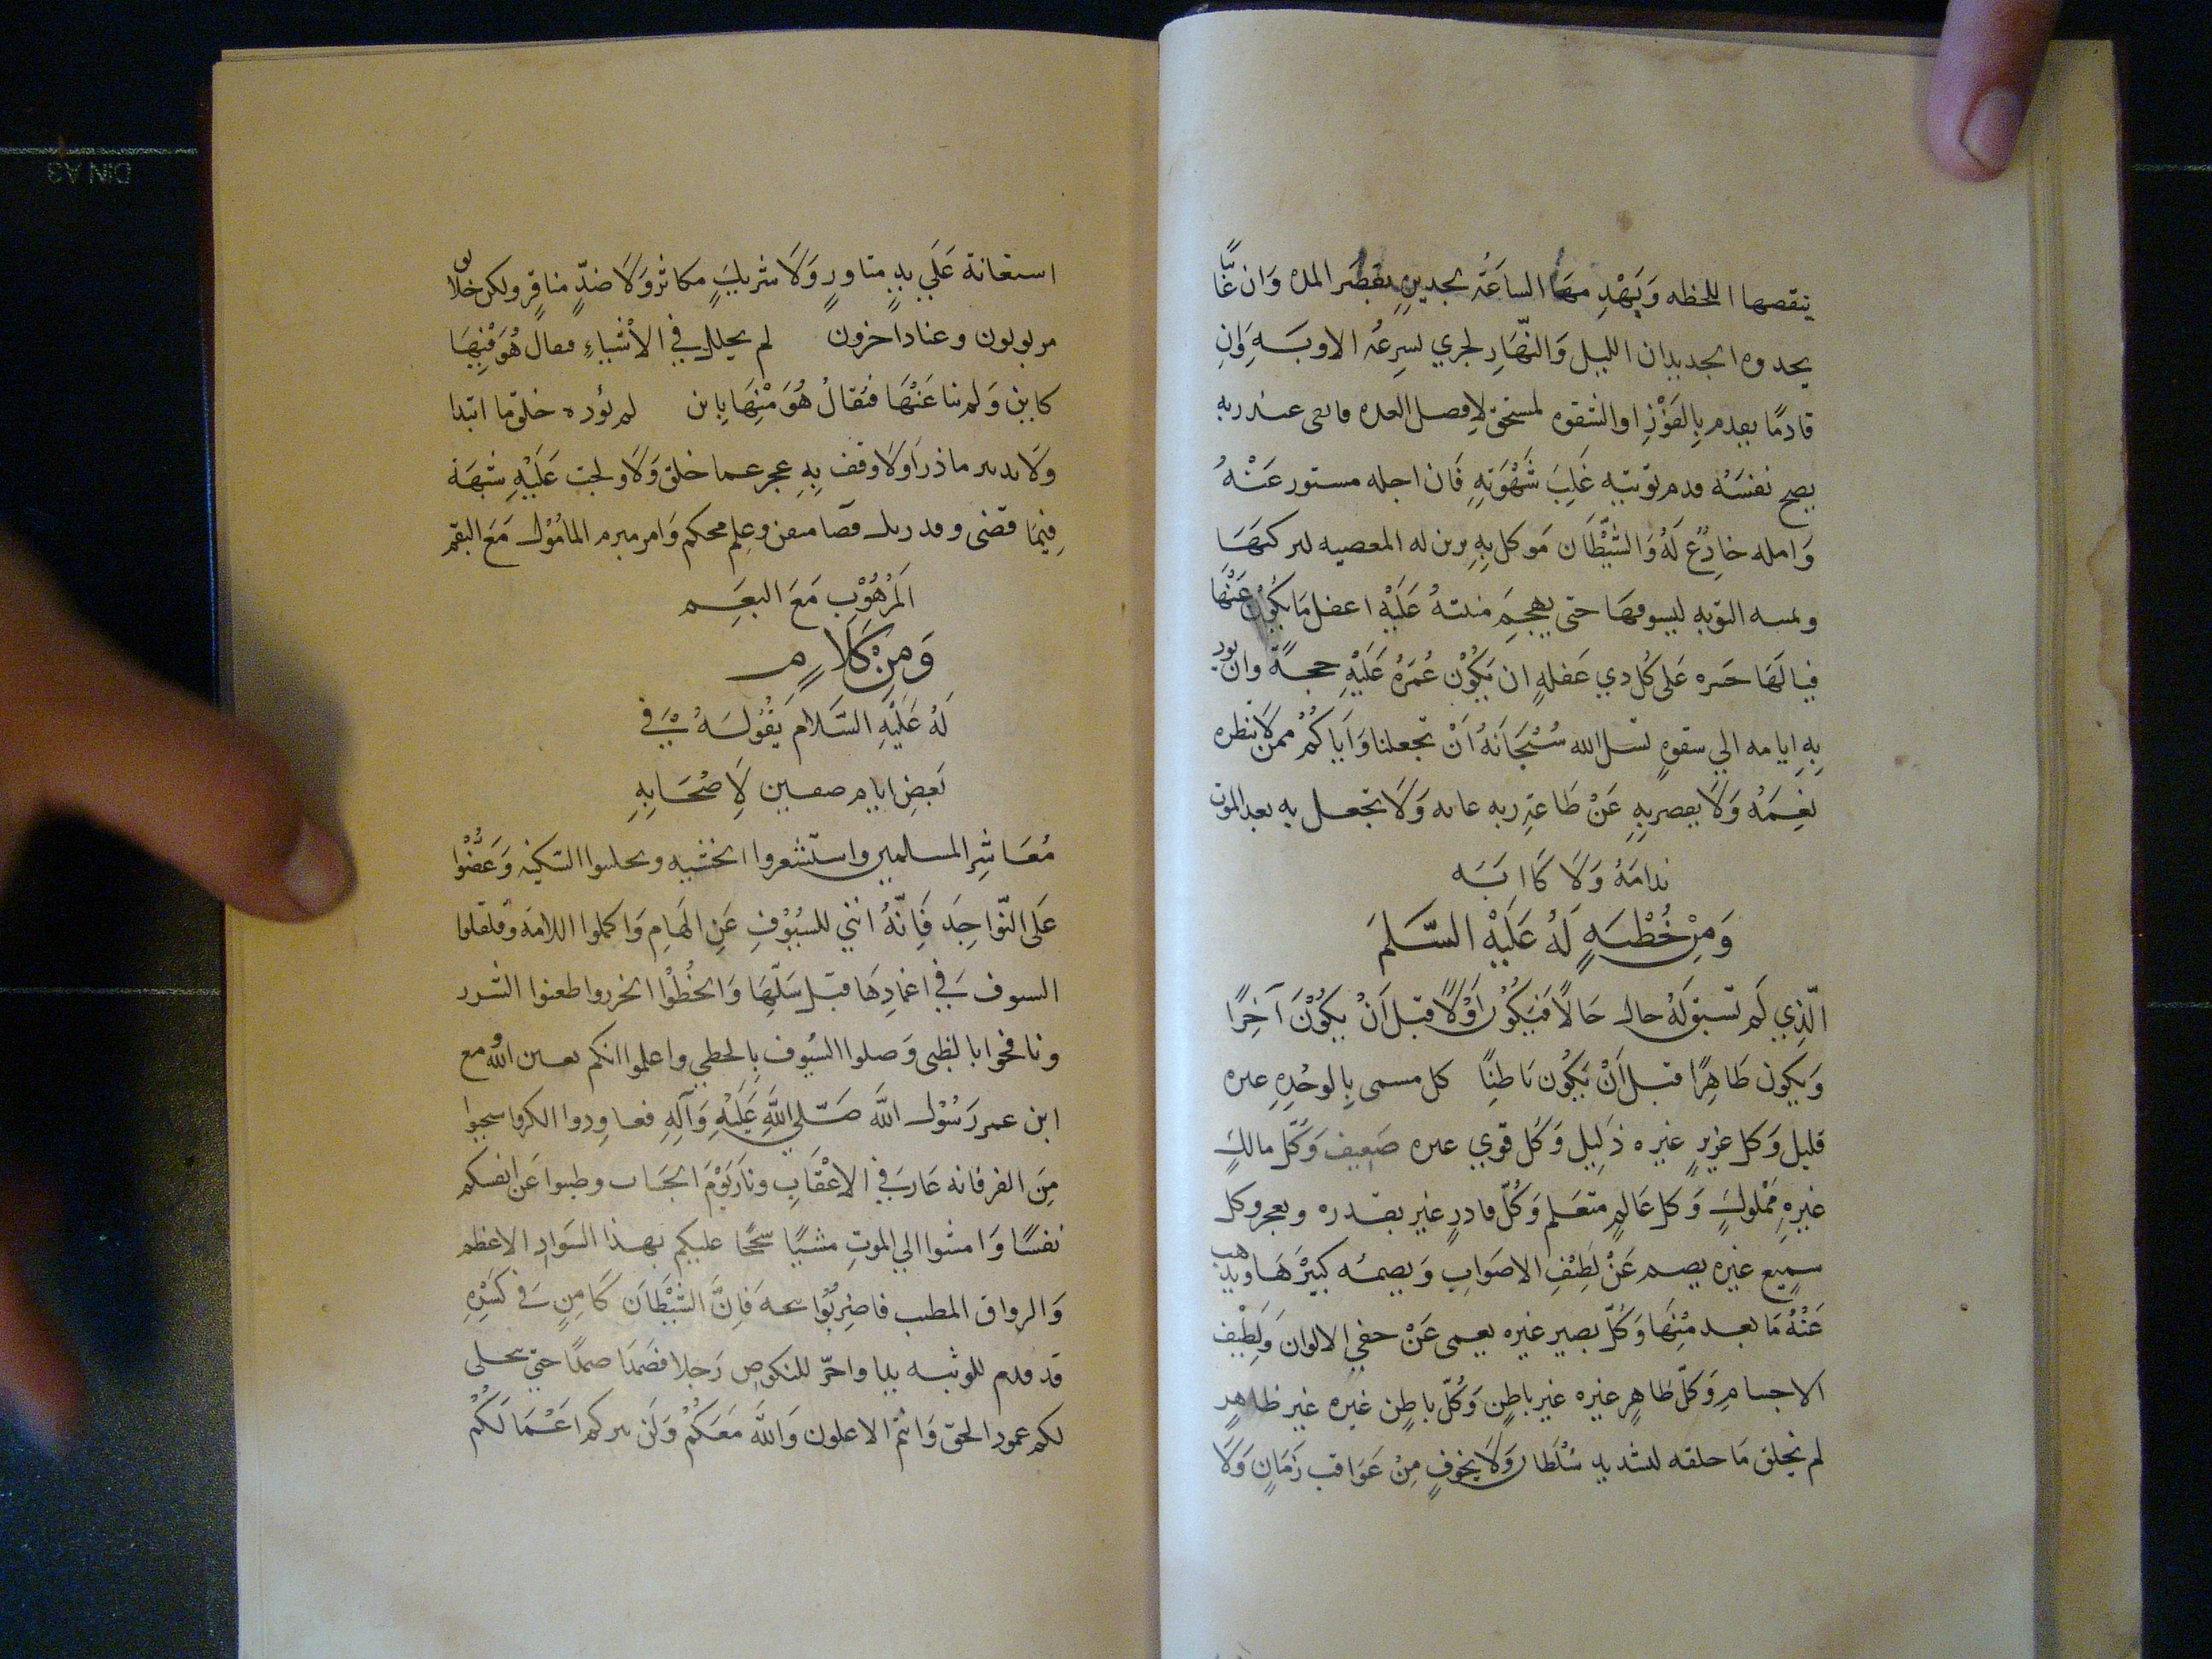 ينقصها اللحظه وَيَهْدِمهَا الساعَةُ بجديرٍ بقِصَر المده وَان غَّا يبًا
يحدوه الجديدان الليل وَالنَّهَارِ لجري بسِرعُه الاوبَه وَانِ
قادمًا يقدم بِالفَوْزِ او الشقوه لمستحق لافضل العده فاتقى عند ربه
نصح نفسَهُ قدم توبته غَلبَ شَهْوَتِهِ فَان اجله مستور عَنْهُ
وَامله خادِع لَهُ وَالشَّيْطَان مَوكل بِهِ يزين له المعصيه ليركبهَا
ويمنيه التوبه ليسوفهَا حتى يهجم منيتهُ عَلَيْه اغفل مَا يَكُونُ عَنْهَا
فيا لَهَا حَسره عَلى كُل ذي غفلهٍ ان يَكُوْن عُمَرُهُ عَلَيْهِ حجةً وان تود
بِهِ ايامه الي شقوهٍ نسل الله سُبْحَانَهُ اَنْ تجعلنا وَاَيَاكُمْ ممن لَا تبطره
نعِمَهُ وَلَا يقصر بِهِ عَنْ طَاعَةِ ربه غايه وَلَا تجعل به بعد الموت
ندامَهُ وَلَا كَاابَه
وَمِنْ خُطْبَهٍ لَهُ عَلَيْهِ السَّلَمَ
الّذِي لَم تسبق لَهُ حال حَالًا فَيَكُوْن اَوْلًا قبل اَنْ يَكُوْنَ آخِرًا
وَيَكون ظَاهِرًا قبل اَنْ يَكُون بَاطِنًا كل مسمى بِالوحْدِهِ غيره
قليل وَكل عزيزٍ غيره ذَلِيل وَكُل قوي غيره ضَعِيف وَكُلّ مالكٍ
غيرِهِ مَمْلوكٍ وَكل عَالمٍ متعَلم وَكُلّ قادرٍ غير بقدره ويعجز وكل
سميع غيره يصم عَنْ لَطِيْفِ الاصَوابِ وَيصمُه كبيْرَهَا ويذهب
عَنْهُ مَا بعد مْنِهَا وَكُلّ بصير غيره يعمى عَنْ خفي الالوان وَلِطَيْف
الاجسامِ وَكلّ ظَاهِرٍ غيره غير باطِن وَكُلّ باطِن غيْره غير ظاهرٍ
لم يخلق مَا خلقه لتشديد سُلْطَانٍ وَلَا يخوفٍ مِنْ عَوَاقب زَمَانٍ وَلَا
استعَانة عَلَي يدٍ متاورٍ وَلَا شريكٍ مكاثر وَلَا ضدٍّ منافرٍ ولكن خلايق
مربوبون وعناد اخرون لم يحلل في الاشْياءِ فيقال هُوَ فْيِهَا
كاين وَلم ينا عَنْهَا فيُقالُ هُوَ مْنِهَا بِاين لم يؤده خلق ما ابتدا
وَلَا تدبير ما ذرَا وَلَا وقف بِهِ عجر عما خلق وَلَا ولجت عَلَيْهِ شبهَة
فِيْمَا قضى وقدر بل قضا متقن وعِلم محكم وَامر مبرم المأمُوْل مَعَ النقم
اَلمَرْهُوْبِ مَعَ النعَم
وَمِنْ كَلَامٍ
لَهُ عَلَيْهِ السَّلَامْ يَقُوْلَهُ فِي
بَعضِ ايام صفين لِاَصْحَابِهِ
مُعَاشِرَ المسلمين واستَشعروا الخشيه وتجلببوا السكينه وَعَضُّوْا
عَلى النّوَاجِدَ فَاِنّهُ انبي للسُيُوْفِ عَنِ الهَامِ وَاكملوا اللامَة وقلقلوا
السوف فَي اغمادِهَا قبل سَلّهَا وَالحُظُوْا الخزر واطعنوا الشرر
ونافحوا بالظبى وَصلوا السُيوف بِالخطي واعلموا انكم بعين اللّه ومع
ابن عم رَسُوْل اللّه صَلّي اللّهِ عَلَيْهِ وَآلِهِ فعاوِدوا الكر واستحيوا
مِنَ الفر فانه عَار فَي الاعْقَابِ ونارَ يَوْمَ الحِسَاب وطيبوا عَن انفسكم
نفسًا وَامشوا الي الموتِ مشيًا سُجُحًا عليكم بهذا السَوَادِ الاعظم
وَالرواق المطنب فاضِرِبُوْا ثبجه فَاِنَّ الشَيْطَانَ كَامِنٍ فَي كَسْرِهِ
قد قدم للوثبه يدا واخّر للنكوصِ رَجلا فصَمدَا صمدًا حتيّ ينجلى
لكم عمود الحق وَانْتم الاعلون وَاللّه مَعَكُمْ وَلَن يتركم اعَْمَالَكُمْ